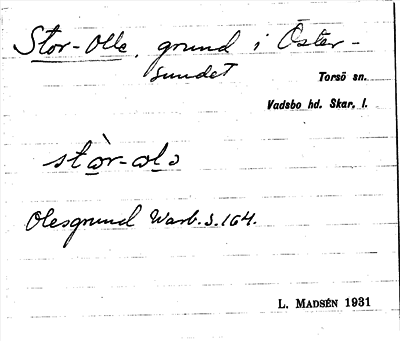 Stor-Olle, grund i Öster-
sundet
Torsö sn.
Vadsbo hd. Skar. l.
stòr-olₔ
Olesgrund Warb. s. 164.
L. MADSÉN 1931